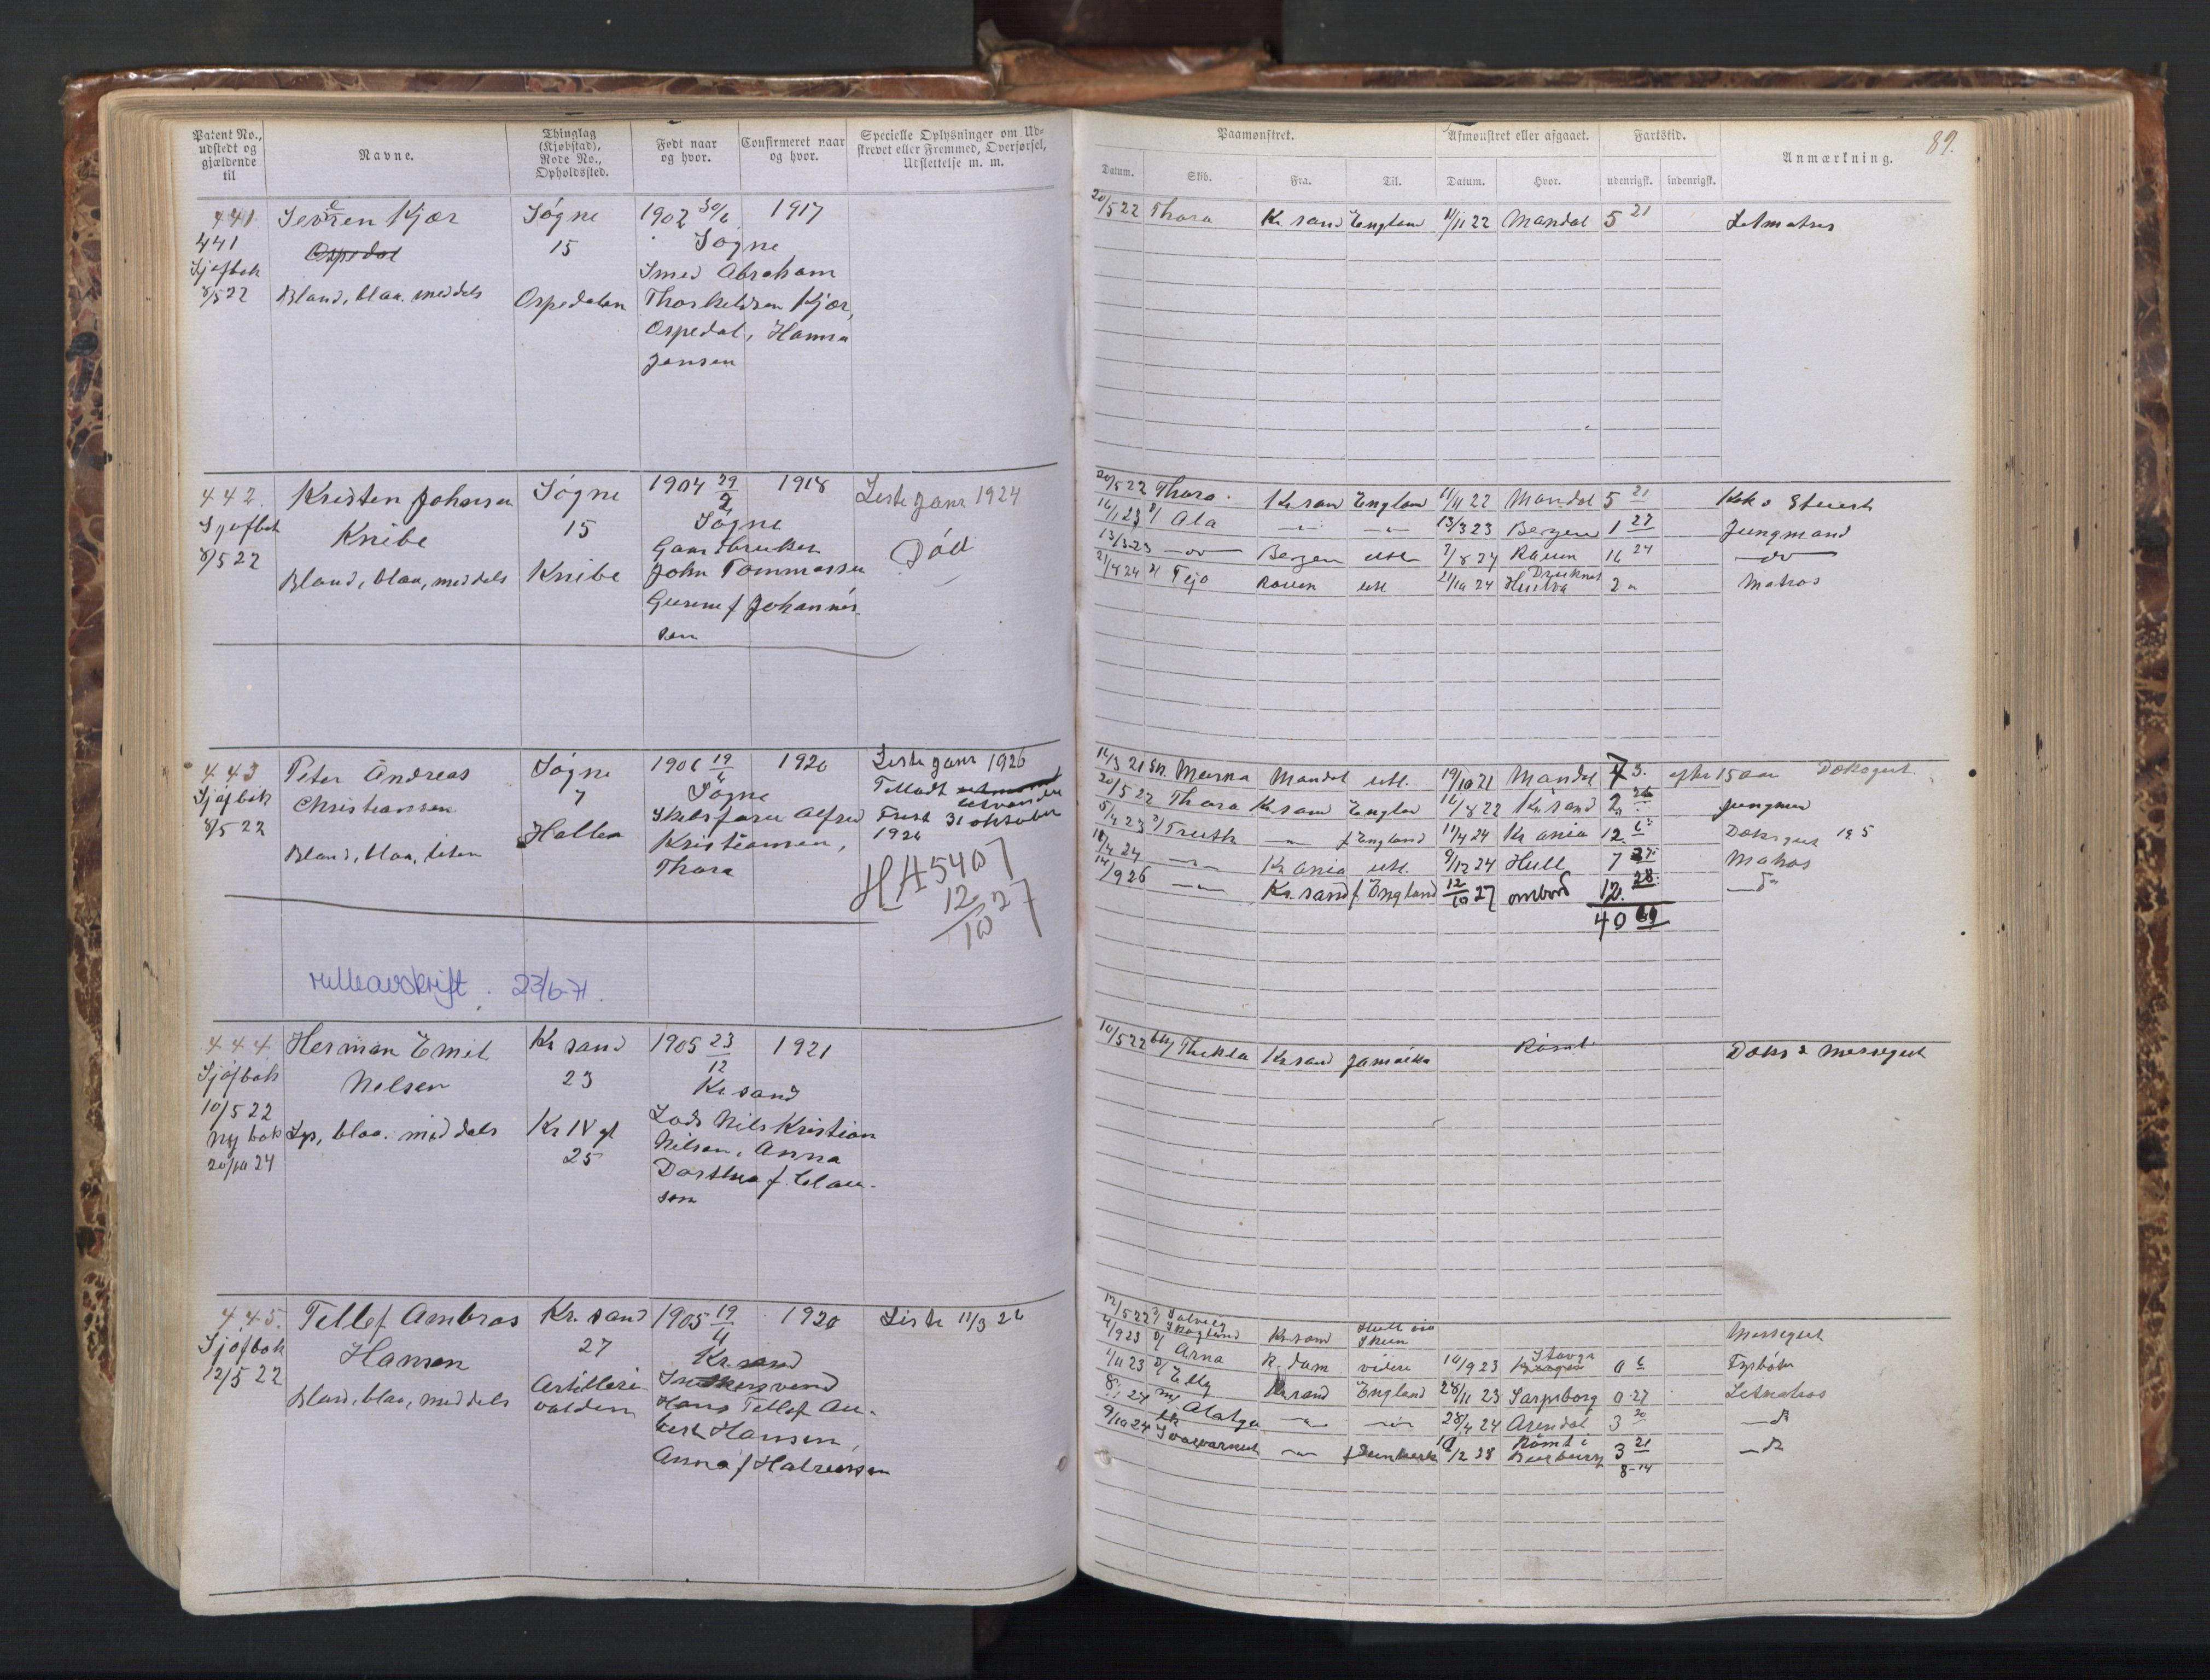 Patent No.,
udstedt og
gjældende
til
Navne.
Thinglag
(Kjøbstad),
Rode No.,
Opholdssted.
Født naar
og hvor.
Confirmeret naar
og hvor.
Specielle Oplysninger om Ud-
skrevet eller Fremmed, Overførsel,
Udslettelse m. m.
441
441
Sjøfbok
8/5 22
Kjær
Ospedal
Blond, blaa, meddels
Søgne
15
Ospedalen
1902 30/6 1917
Søgne
Smed Abraham
Thorkeldsen Kjær,
Ospedal, Hanna
Jensen
442.
Sjøfbok
8/5 22
Kristen Johnsen
Knibe
Blond, blaa, meddels
Søgne
15
Knibe
1904 29/2 1918
Søgne
Gaardbruker
John Tommassen
Gurine f Johannes-
sen
Liste janr 1924
Død
443
Sjøfbok
8/5 22
Peter Andreas
Christiansen
Blond, blaa, liten
Søgne
7
Hallen
1906 19/6 1920
Søgne
Skibsfører Alfred
Kristiansen,
Thora
Liste janr 1926
Tilladt
utvandre
Frist 31 oktober
1926
HA 5407
12/10 27
rulleavskrift. 23/6-71.
444
Sjøfbok
10/5 22
Ny bok
20/10 24
Herman Emil
Nilsen
Lys, blaa. middels
Kr sand
23
Kr IV gt
25
1905 23/12 1921
Kr. sand
Lods Nils Kristian
Nilsen, Anna
Dorthea f. Clau-
sen
445.
Sjøfbok
12/5 22
Tellef Ambros
Hansen
Blond, blaa, meddels
Kr. sand
27
Artilleri
volden
1905 19/4 1920
Kr. sand
Snekkersvend
Hans Tellef Au-
bert Hansen,
Anna f Halvorsen
Liste 11/3 26
89.
Paamønstret.
Afmønstret eller afgaaet.
Fartstid.
Anmærkning.
Datum. Skib. Fra. Til. Datum. Hvor. udenrigsk. indenrigsk.
20/5 22 Thora Kr sand England 11/11 22 Mandal 5 21 Letmatros
20/5 22 Thora Kr sand England 11/11 22 Mandal 5 21 Kok o Stuert
16/1 23 Ala 13/3 23 Bergen 1 27 Jungmand
13/3 23 —do— Bergen utl 2/8 24 Rouen 16 24 —do—
2/8 24 Tejo Rouen utl 21/10 24 Druknet
Huelva 2 " Matros
14/3 21 Sk. Marna Mandal utl. 19/10 21 Mandal 7 3. efter 15 aar Dæksgut
20/5 22 Thora Kr sand England 16/8 22 Kr. sand 2 26 Jungmand
5/4 23 Truth f England 11/4 24 Kr ania 12 6 Dæksgut 125
Kr ania utl. 9/12 24 Hull 7 Matros
14/9 26 Kr. sand f. England 12/10 27 ombord 12 28
40
10/5 22 Thekla Kr sand Jamaika Rømt Dæks & messegut
12/5 22 Solveig
Skogland Kr. sand Hull via
Skien Messegut
4/9 23 Arna R. dam videre 10/9 23 Stavgr 0 6 Fyrbøter
1/11 23 Elly Kr. sand England 28/11 23 Sarpsborg 0 27 Letmatros
28/4 24 Arendal 3 20
9/10 24 f Dunkerk Rømt i
3 21
8-14